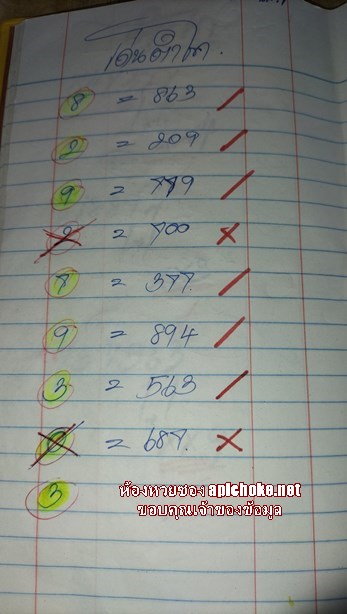 8 = 863 /
2 = 209 /
9 = 779 /
= 700 x
7 = 377. /
9 = 894 /
3 = 563 /
= 687. x
3
ห้องหวยซอง apichoke.net
ขอบคุณเจ้าของข้อมูล